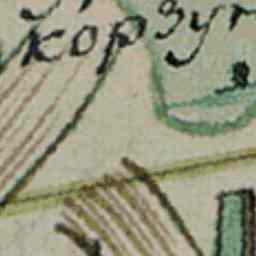 корзун